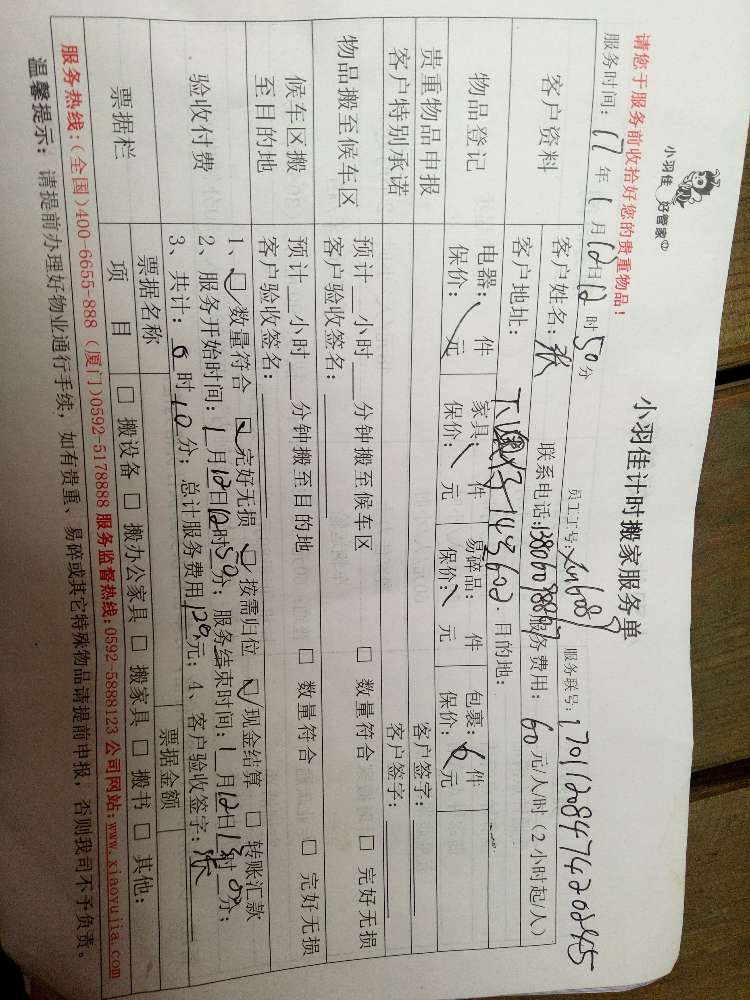 小羽佳 好管家
小羽佳计时搬家服务单
请您于服务前收拾好您的贵重物品！
员工工号： 服务联号：
服务时间：17年1月12日12时50分
客户资料 客户姓名：张 联系电话： 服务费用：60元/人/时（2小时起/人）
客户地址： 目的地：
物品登记 电器： 件 家具： 件 易碎品： 件 包裹：6件
保价： 元 保价： 元 保价： 元 保价： 元
贵重物品申报 客户签字：
客户特别承诺 客户签字：
物品搬至候车区 预计__小时__分钟搬至候车区 □ 数量符合 □ 完好无损
客户验收签名：
候车区搬至目的地 预计__小时__分钟搬至目的地 □ 数量符合 □ 完好无损
客户验收签名：
验收付费 1、☑ 数量符合 ☑ 完好无损 ☑ 按需归位 ☑ 现金结算 □ 转账汇款
2、服务开始时间：1月12日12时50分；服务结束时间：1月12日13时 分；
3、共计： 时10分；总计服务费用120元；4、客户验收签字：张
票据栏 票据名称 票据金额
项 目 □ 搬设备 □ 搬办公家具 □ 搬家具 □ 搬书 □ 其他：
服务热线：（全国）400-6655-888（厦门）0592-5178888 服务监督热线：0592-5888123 公司网站：www.xiaoyujia.com
温馨提示：请提前办理好物业通行手续，如有贵重、易碎或其它特殊物品请提前申报，否则我司不予负责。